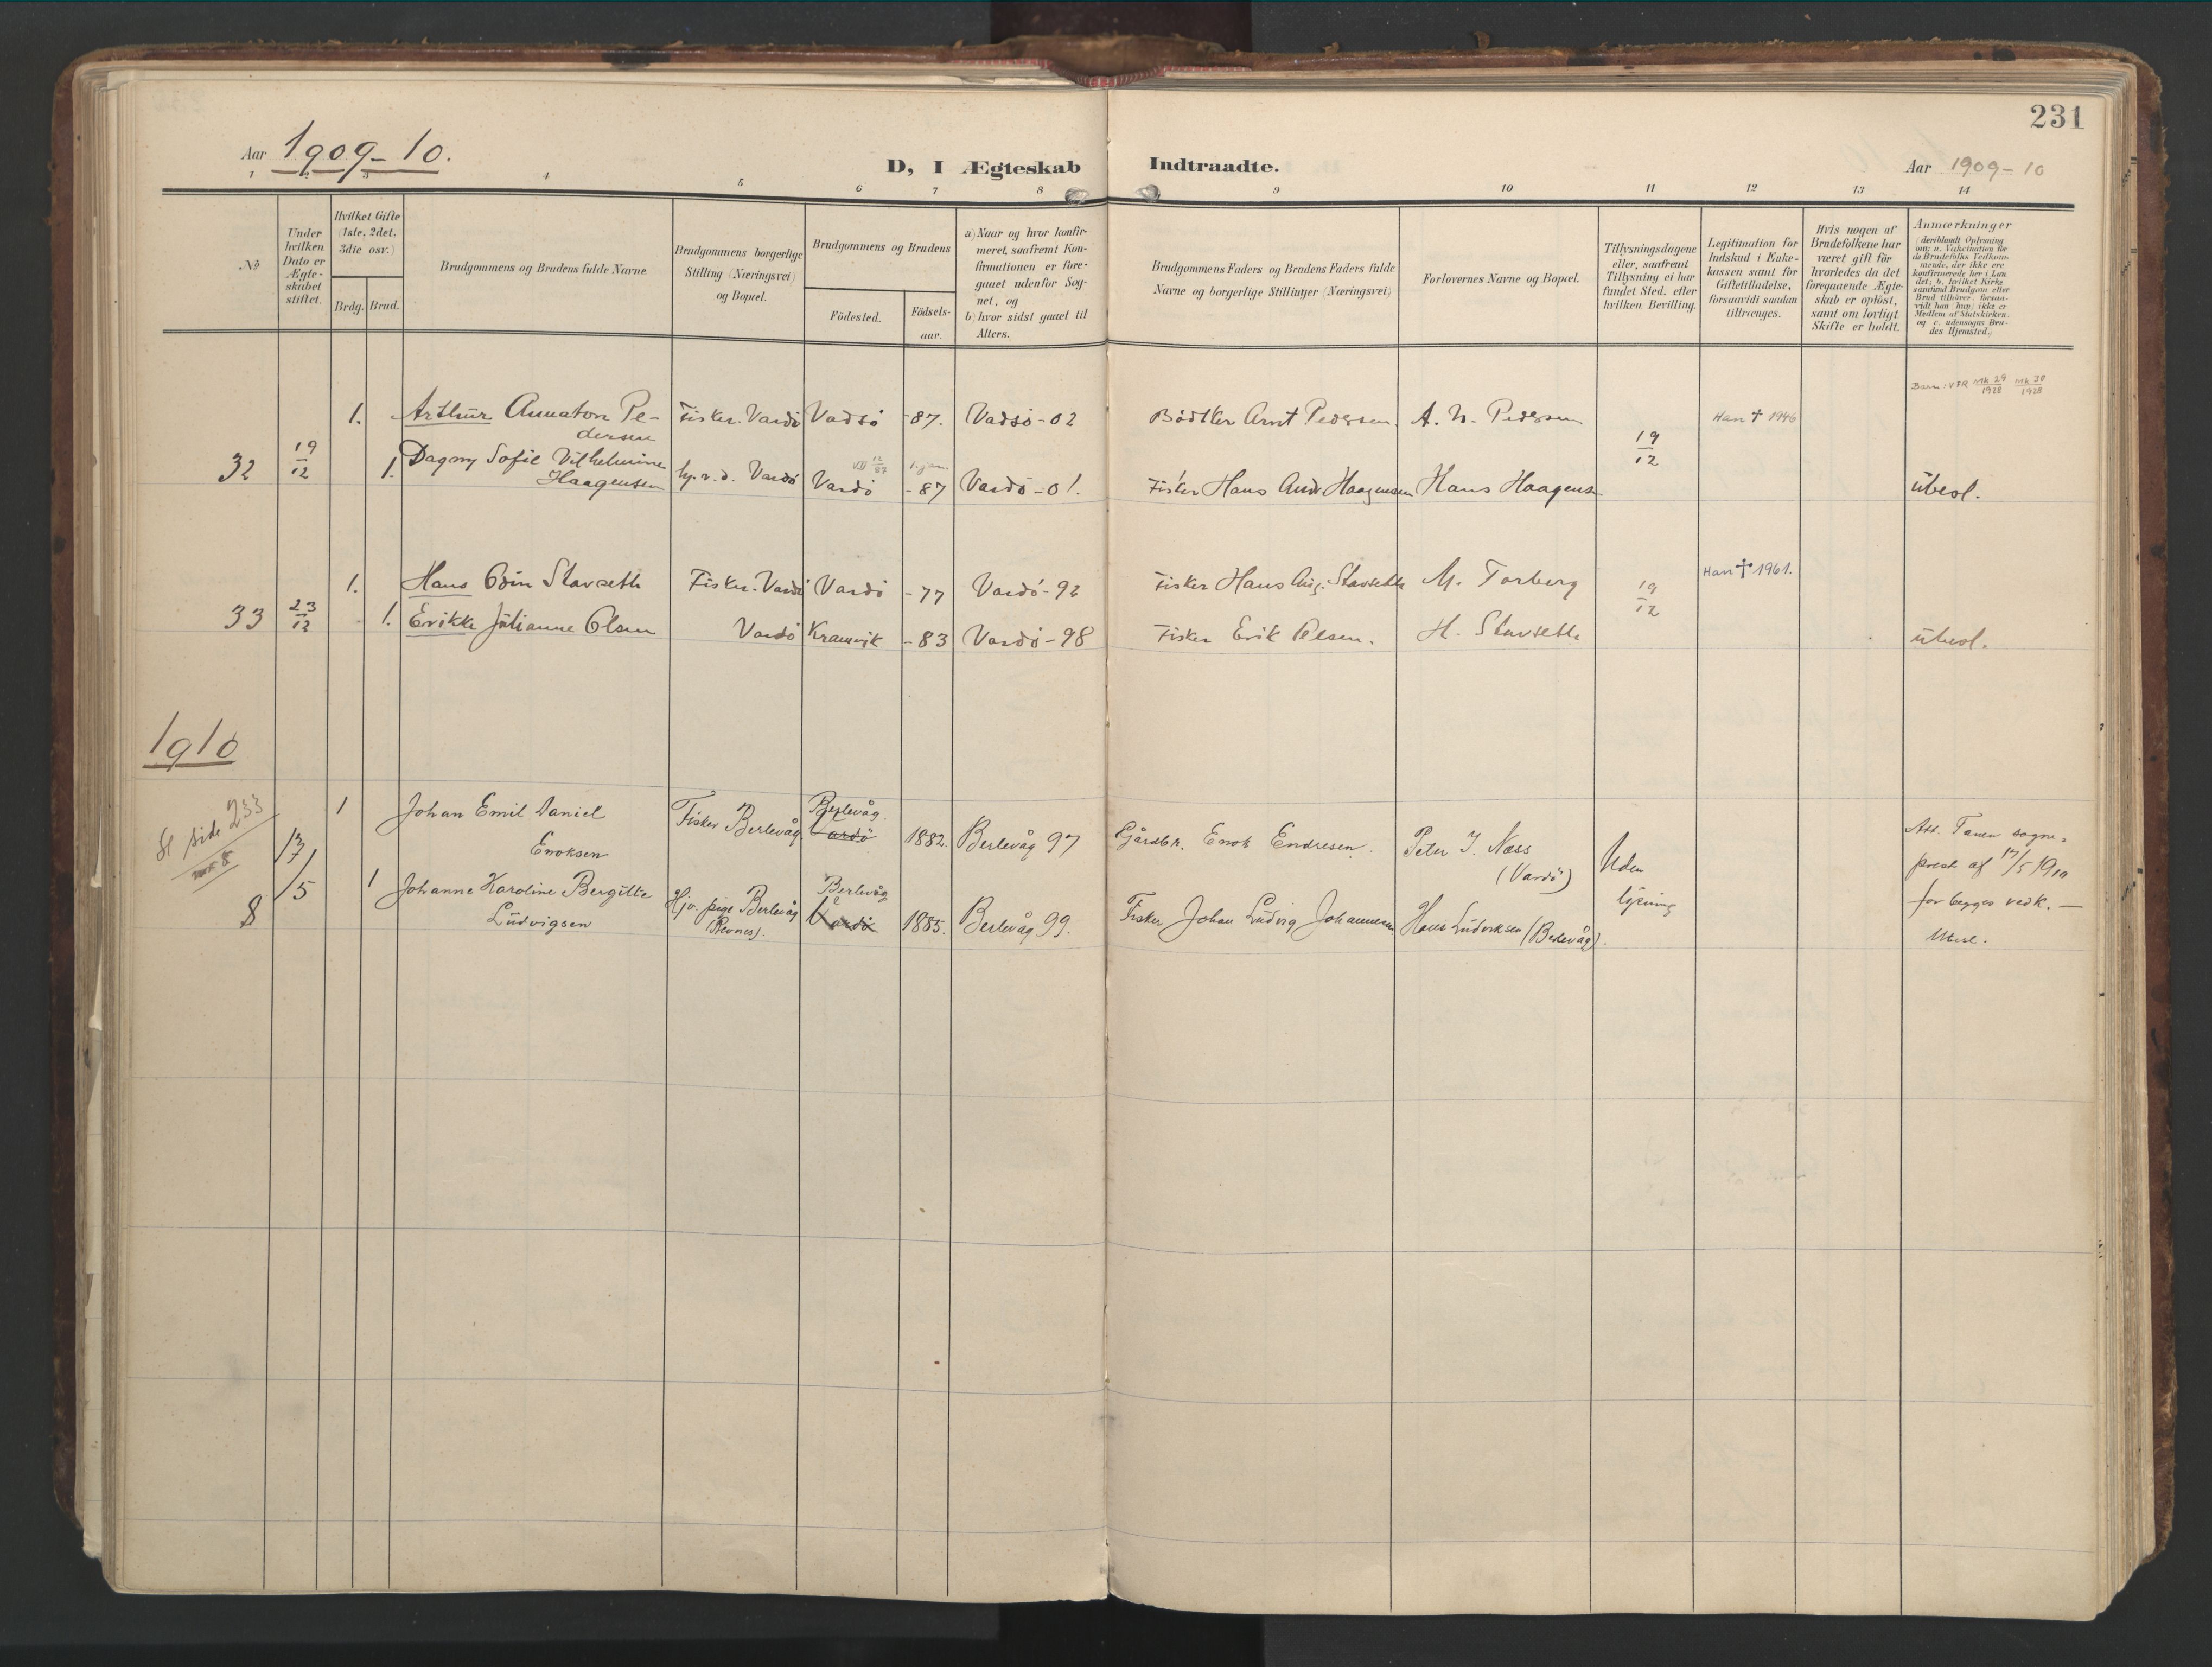 231
Aar 1909-10.
D, I Ægteskab Indtraadte.
Aar 1909-10
1 2 3 4 5 6 7 8 9 10 11 12 13 14
No
Under hvilken Dato er Ægteskabet stiftet.
Hvilket Gifte (1ste, 2det, 3die osv.)
Brdg. Brud.
Brudgommens og Brudens fulde Navne
Brudgommens borgerlige Stilling (Næringsvei) og Bopæl.
Brudgommens og Brudens
Födested.
Födselsaar.
a) Naar og hvor konfirmeret, saafremt Konfirmationen er foregaaet udenfor Sognet, og
b) hvor sidst gaaet til Alters.
Brudgommens Faders og Brudens Faders fulde Navne og borgerlige Stillinger (Næringsvei)
Forlovernes Navne og Bopæl.
Tillysningsdagene eller, saafremt Tillysning ei har fundet Sted, efter hvilken Bevilling.
Legitimation for Indskud i Enkekassen samt for Giftetilladelse, forsaavidt saadan tiltrænges.
Hvis nogen af Brudefolkene har været gift för hvorledes da det foregaaende Ægteskab er oplöst, samt om lovligt Skifte er holdt.
Anmærkninger
(deriblandt Oplysning om: a. Vakcination for de Brudefolks Vedkommende, der ikke ere konfirmerede her i Landet; b. hvilket Kirkesamfund Brudgom eller Brud tilhörer, forsaavidt han/hun ikke er Medlem af Statskirken og c. udensogns Brudes Hjemsted.)
Barn: VFR Mk 29/1928 Mk 30/1928
1. Arthur Annaton Pedersen Fisker. Vardö Vadsö -87. Vadsö-02 Bödtker Arnt Pedersen. A. N. Pedersen Han † 1946
32 19/12 1. Dagny Sofie Vilhelmine Haagensen hj. v. d. Vardö Vardö -87 Vardö-01. Fisker Hans Andr Haagensen Hans Haagens 19/12 übesl.
1. Hans Odin Stavseth Fisker. Vardö Vardö -77 Vardö-92 Fisker Hans Aug. Stavseth M. Torberg Han † 1961.
33 23/12 1. Erikke Jülianne Olsen Vardö Kramvik -83 Vardö-98 Fisker Erik Olsen. H. Stavseth 19/12 übesl.
1910
Sl side 233
1 Johan Emil Daniel Enoksen Fisker Berlevåg Berlevåg. Vardö 1882. Berlevåg 97 Gårdbr. Enok Endresen. Peter J. Næss (Vardö) Uden lysning
8 17/5 1 Johanne Karoline Bergitte Lüdvigsen Hjv. pige Berlevåg Berlevåg Vardö 1885. Berlevåg 99. Fisker Johan Lüdvig Johannesen Hans Lüdviksen (Berlevåg).
Att. Tanen sogneprest af 17/5 1910 for begges vedk. — Ubesl.